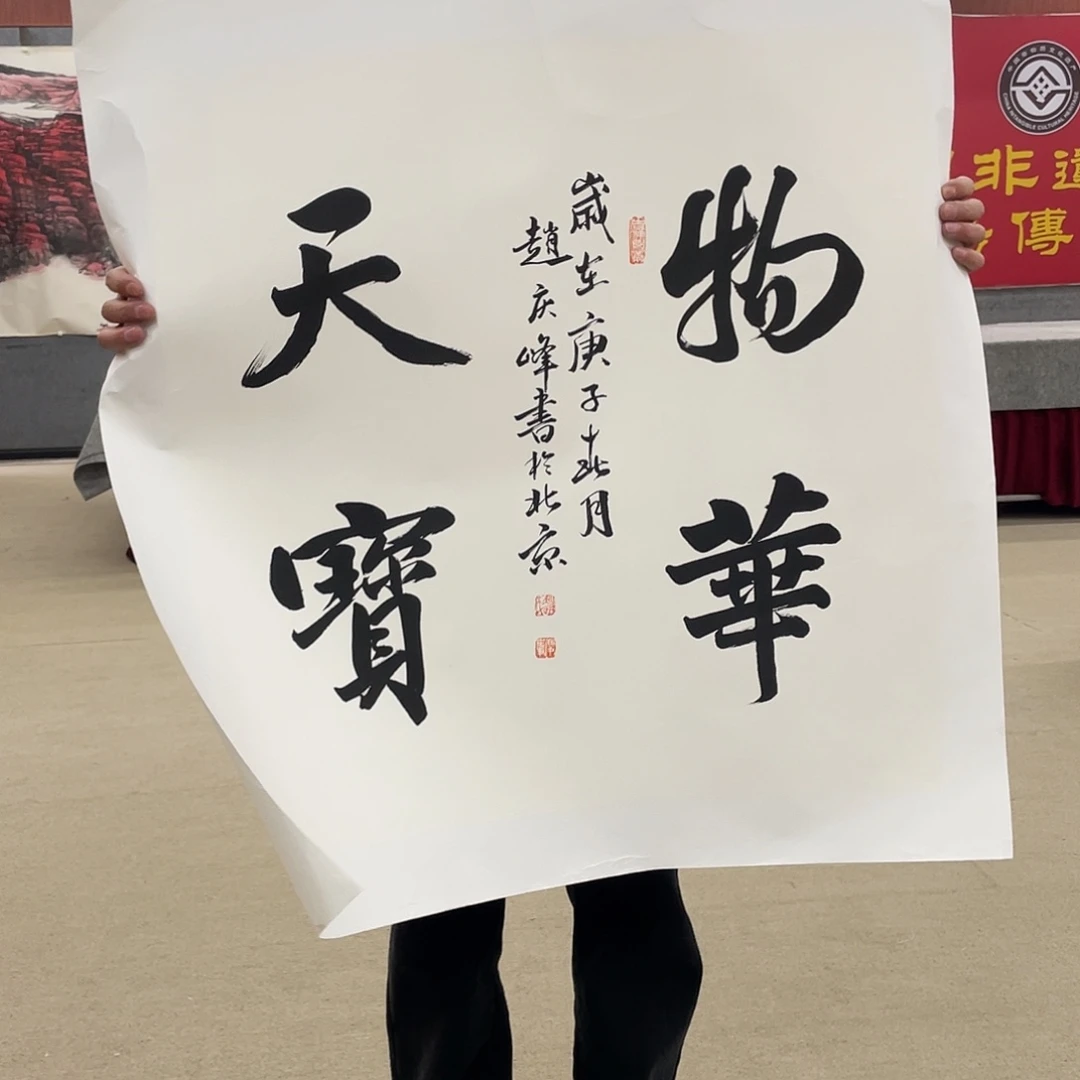 物華
天寶
歲在庚子春月
趙庆峰書於北京
非遺
傳
CHINA INTANGIBLE CULTURAL HERITAGE